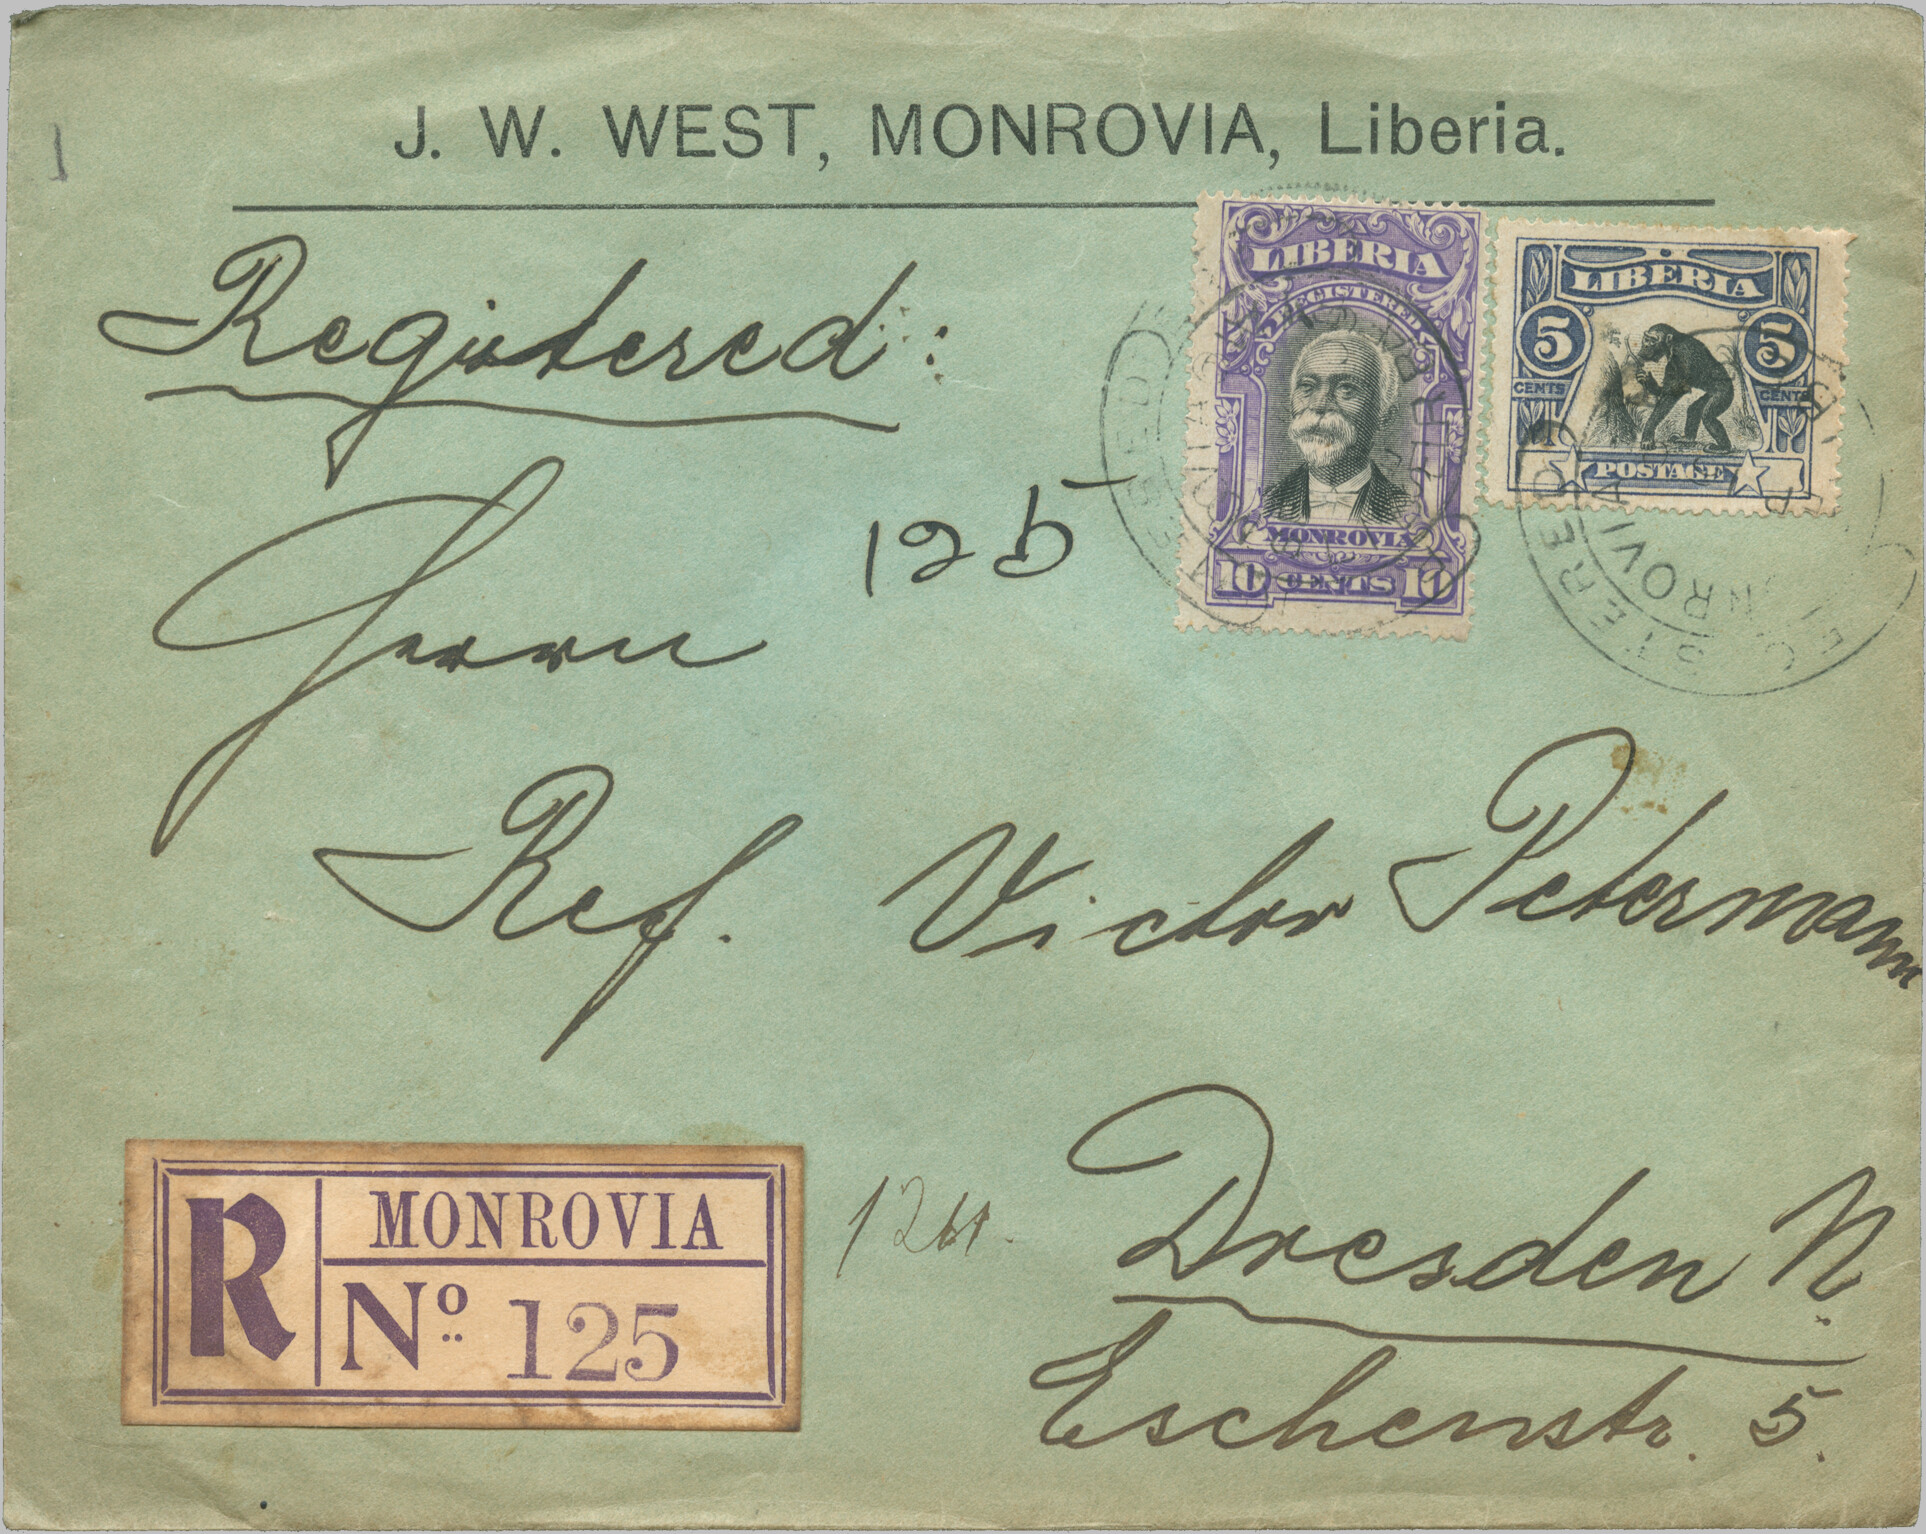 J. W. WEST, MONROVIA, Liberia.
1
Registered:
LIBERIA
REGISTERED
MONROVIA
10 CENTS 10
LIBERIA
5 5
CENTS CENTS
POSTAGE
125
Herrn
Ref. Victor Petermann
Dresden N.
Eschenstr. 5.
R
MONROVIA
No 125
REGISTERED
MONROVIA